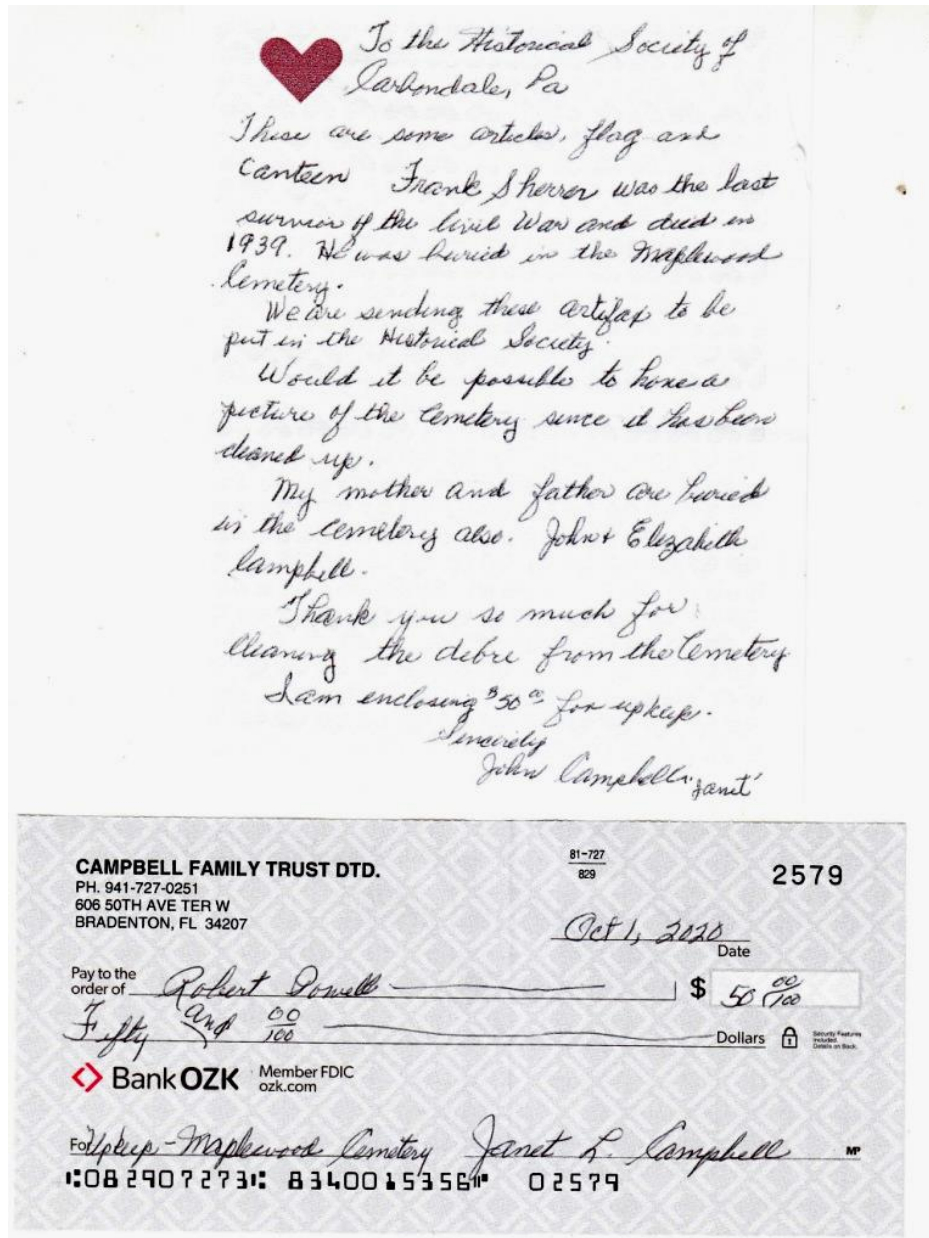 To the Historical Society of
Carbondale, Pa
These are some articles, flag and
Canteen Frank Sherrer was the last
survivor of the Civil War and died in
1939. He was buried in the Maplewood
Cemetery.
We are sending these artifax to be
put in the Historical Society.
Would it be possible to have a
picture of the Cemetery since it has been
cleaned up.
My mother and father are buried
in the cemetery also. John + Elizabeth
Campbell.
Thank you so much for
cleaning the debre from the Cemetery
I am enclosing $50 00 for upkeep.
Sincerely
John Campbell Janet
CAMPBELL FAMILY TRUST DTD.
PH. 941-727-0251
606 50TH AVE TER W
BRADENTON, FL 34207
81-727
829
2579
Oct 1, 2020
Date
Pay to the
order of Robert Powell $ 50 00/100
Fifty and 00/100 Dollars
Security Features
Included.
Details on Back.
BankOZK Member FDIC
ozk.com
For Upkeep - Maplewood Cemetery Janet L. Campbell MP
⑆082907273⑆ 8340015356⑈ 02579